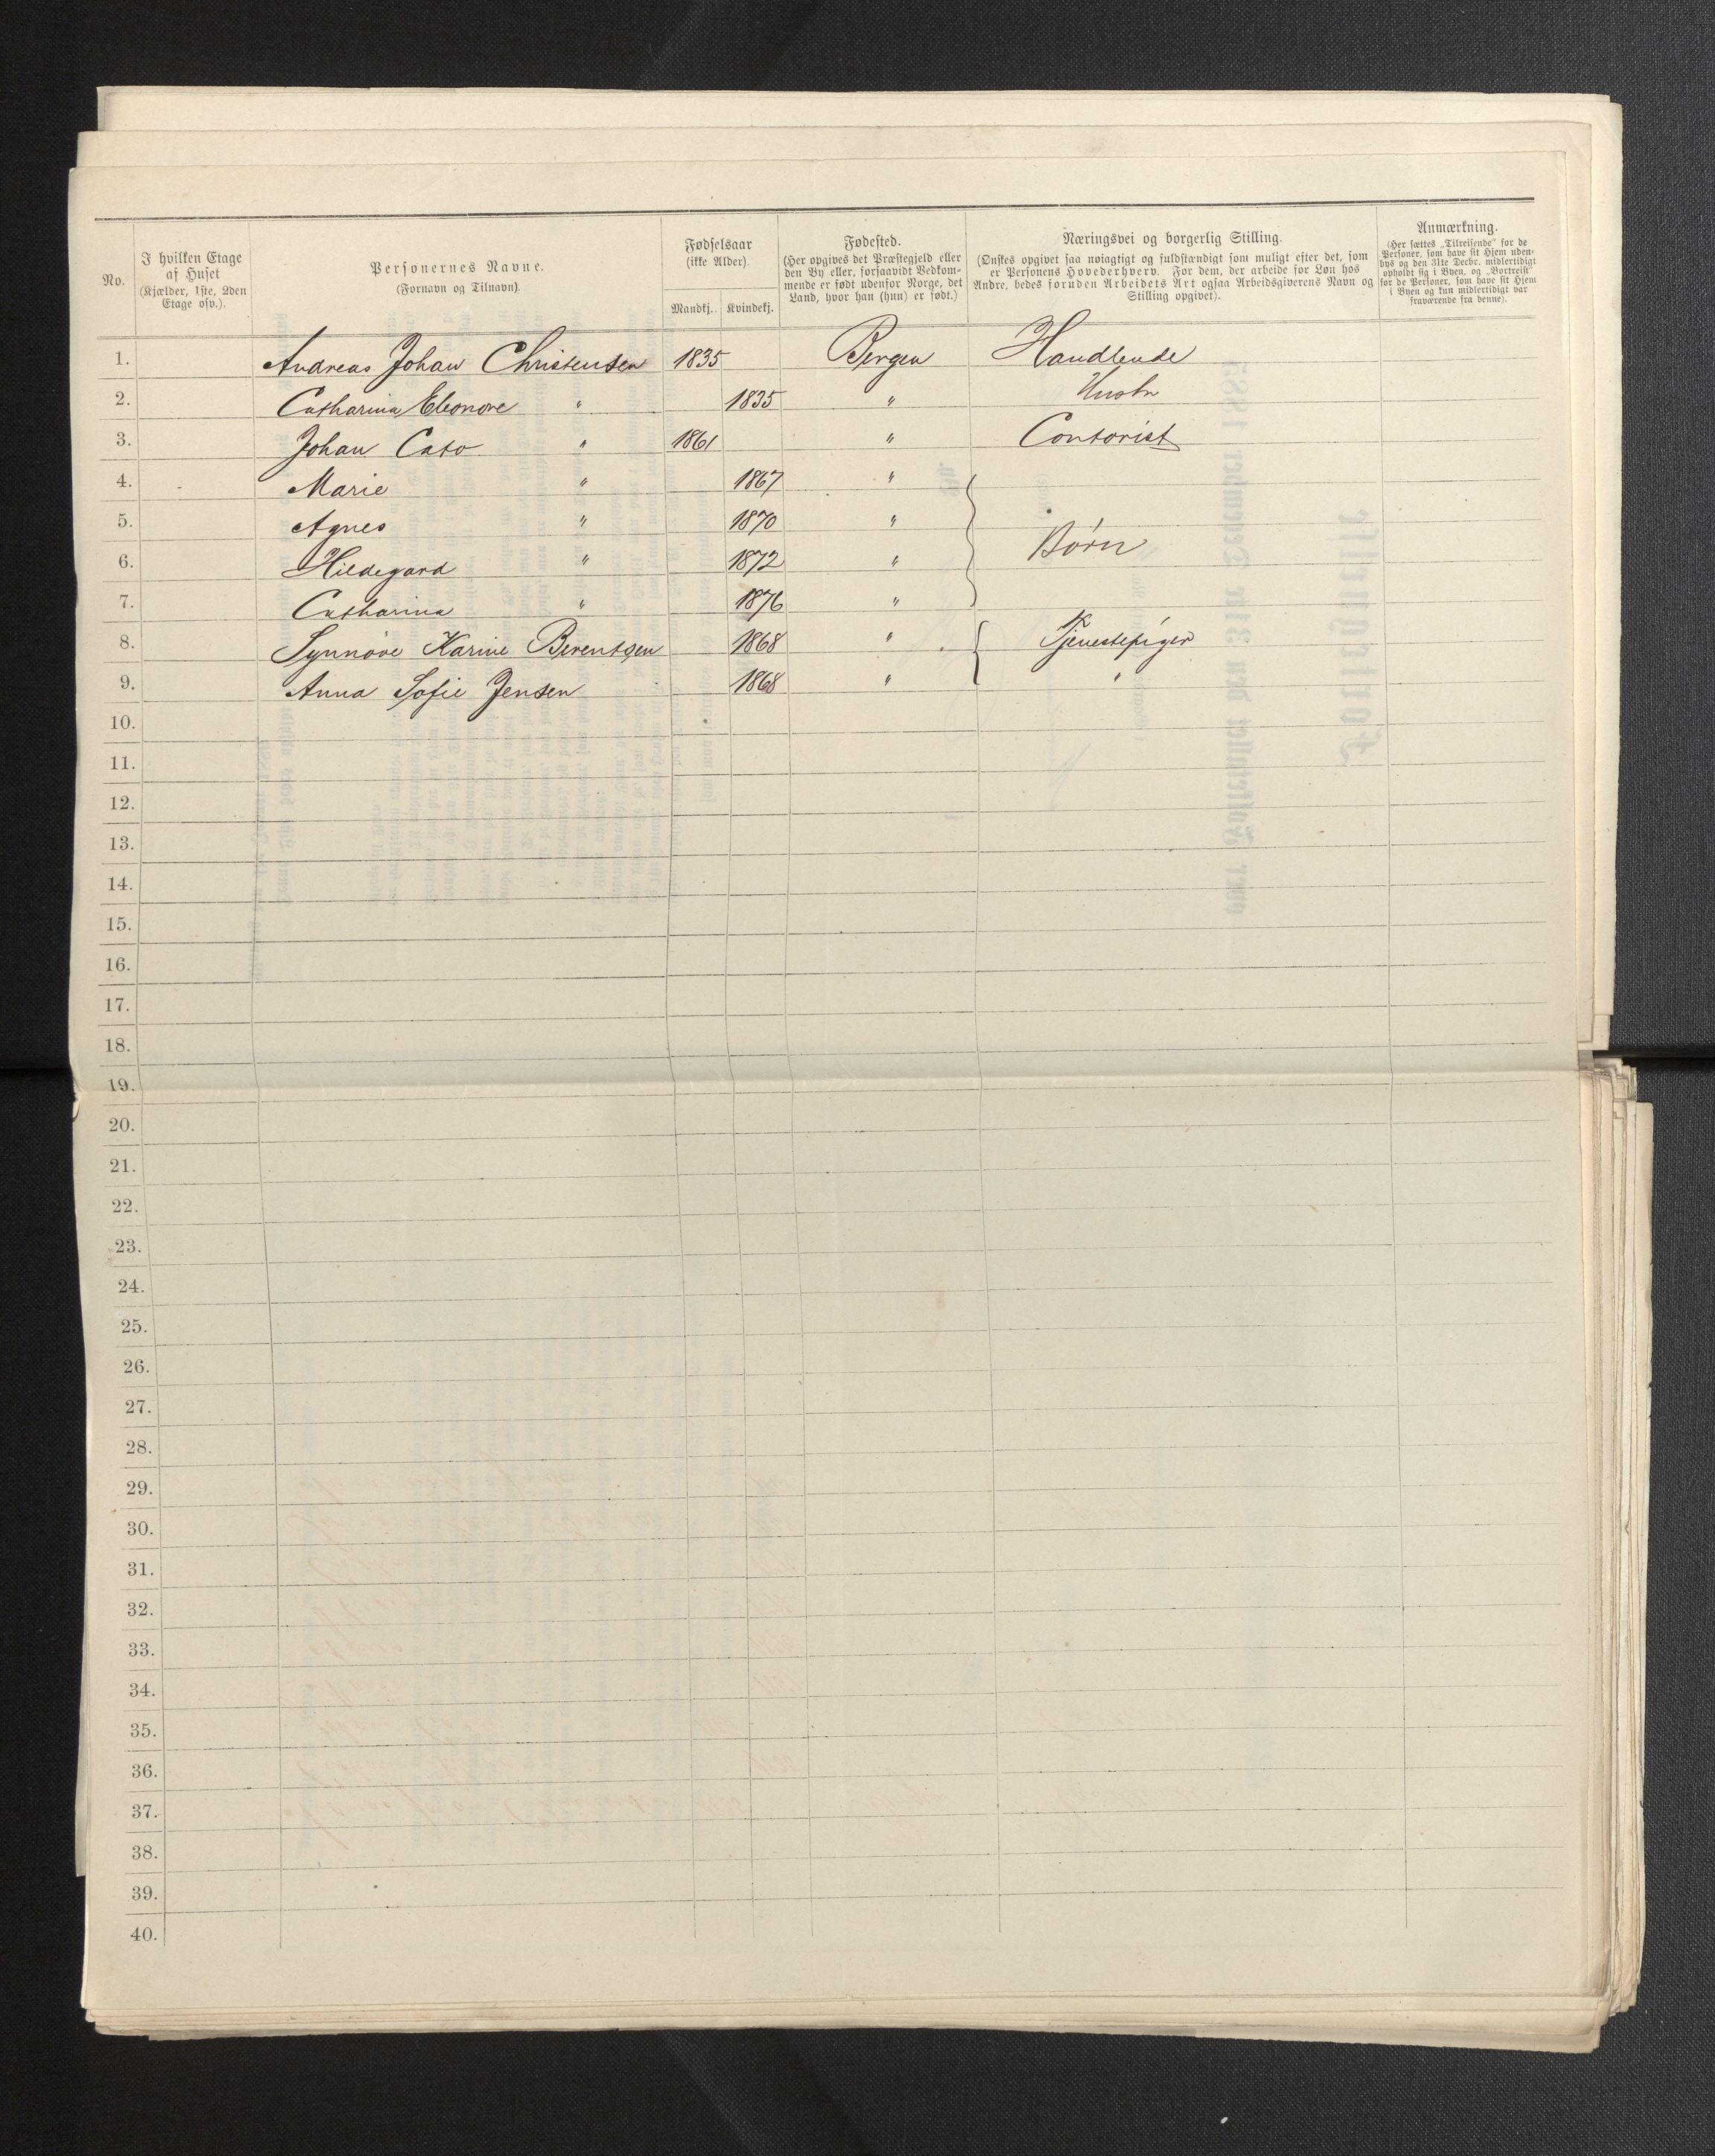 No.
I hvilken Etage af Huset (Kjælder, 1ste, 2den Etage osv.).
Personernes Navne. (Fornavn og Tilnavn).
Fødselsaar (ikke Alder).
Mandkj. Kvindekj.
Fødested. (Her opgives det Præstegjeld eller den By eller, forsaavidt Vedkommende er født udenfor Norge, det Land, hvor han (hun) er født.)
Næringsvei og borgerlig Stilling. (Ønskes opgivet saa nøiagtigt og fuldstændigt som muligt efter det, som er Personens Hovederhverv. For dem, der arbeide for Løn hos Andre, bedes foruden Arbeidets Art ogsaa Arbeidsgiverens Navn og Stilling opgivet).
Anmærkning. (Her sættes „Tilreisende" for de Personer, som have sit Hjem udenbys og den 31te Decbr. midlertidigt opholdt sig i Byen, og „Bortreist" for de Personer, som have sit Hjem i Byen og kun midlertidigt var fraværende fra denne).
1. Andreas Johan Christensen 1835 Bergen Handlende
2. Catharina Eleonore " 1835 " Hustr
3. Johan Cato " 1861 " Contorist
4. Marie " 1867 "
5. Agnes " 1870 " Børn
6. Hildegard " 1872 "
7. Catharina " 1876 "
8. Synnøve Karine Berentsen 1868 " Tjenestepiger
9. Anna Sofie Jensen 1868 " "
10.
11.
12.
13.
14.
15.
16.
17.
18.
19.
20.
21.
22.
23.
24.
25.
26.
27.
28.
29.
30.
31.
32.
33.
34.
35.
36.
37.
38.
39.
40.